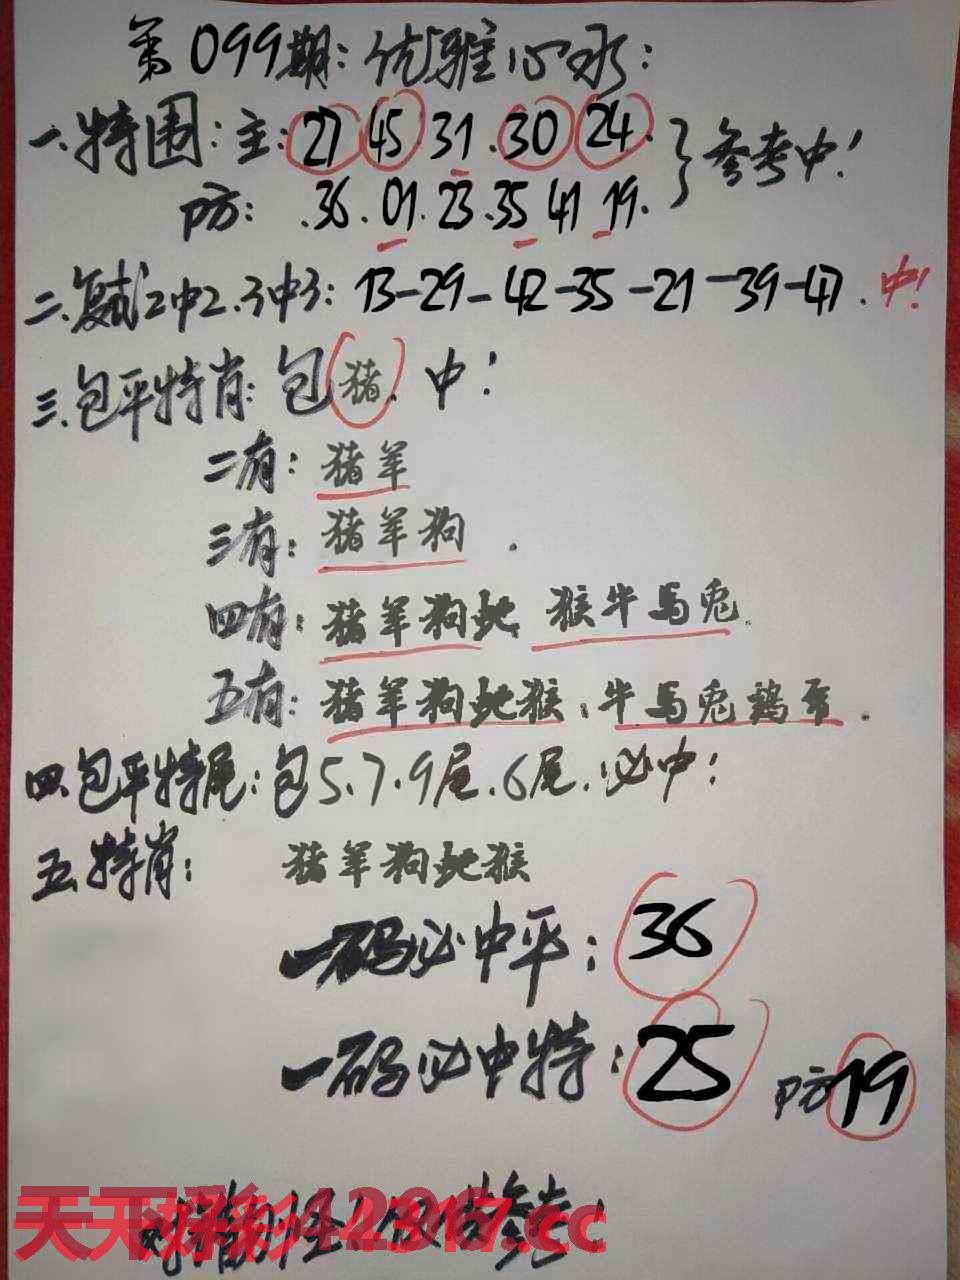 第099期:优雅心水:
一.特围:主:27 45.31.30 24.}参考中!
防:.36.01.23.35 41 19.
二.复式2中2.3中3:13-29-42-35-21-39-47.中!
三.包平特肖:包猪.中!
二有:猪羊
三有:猪羊狗.
四有:猪羊狗蛇 猴牛马兔.
五有:猪羊狗蛇猴;牛马兔鸡
四.包平特尾:包5.7.9尾.6尾.必中!
五.特肖:猪羊狗蛇猴
一码必中平:36
一码必中特:25 防19
天下彩 cc
参考!